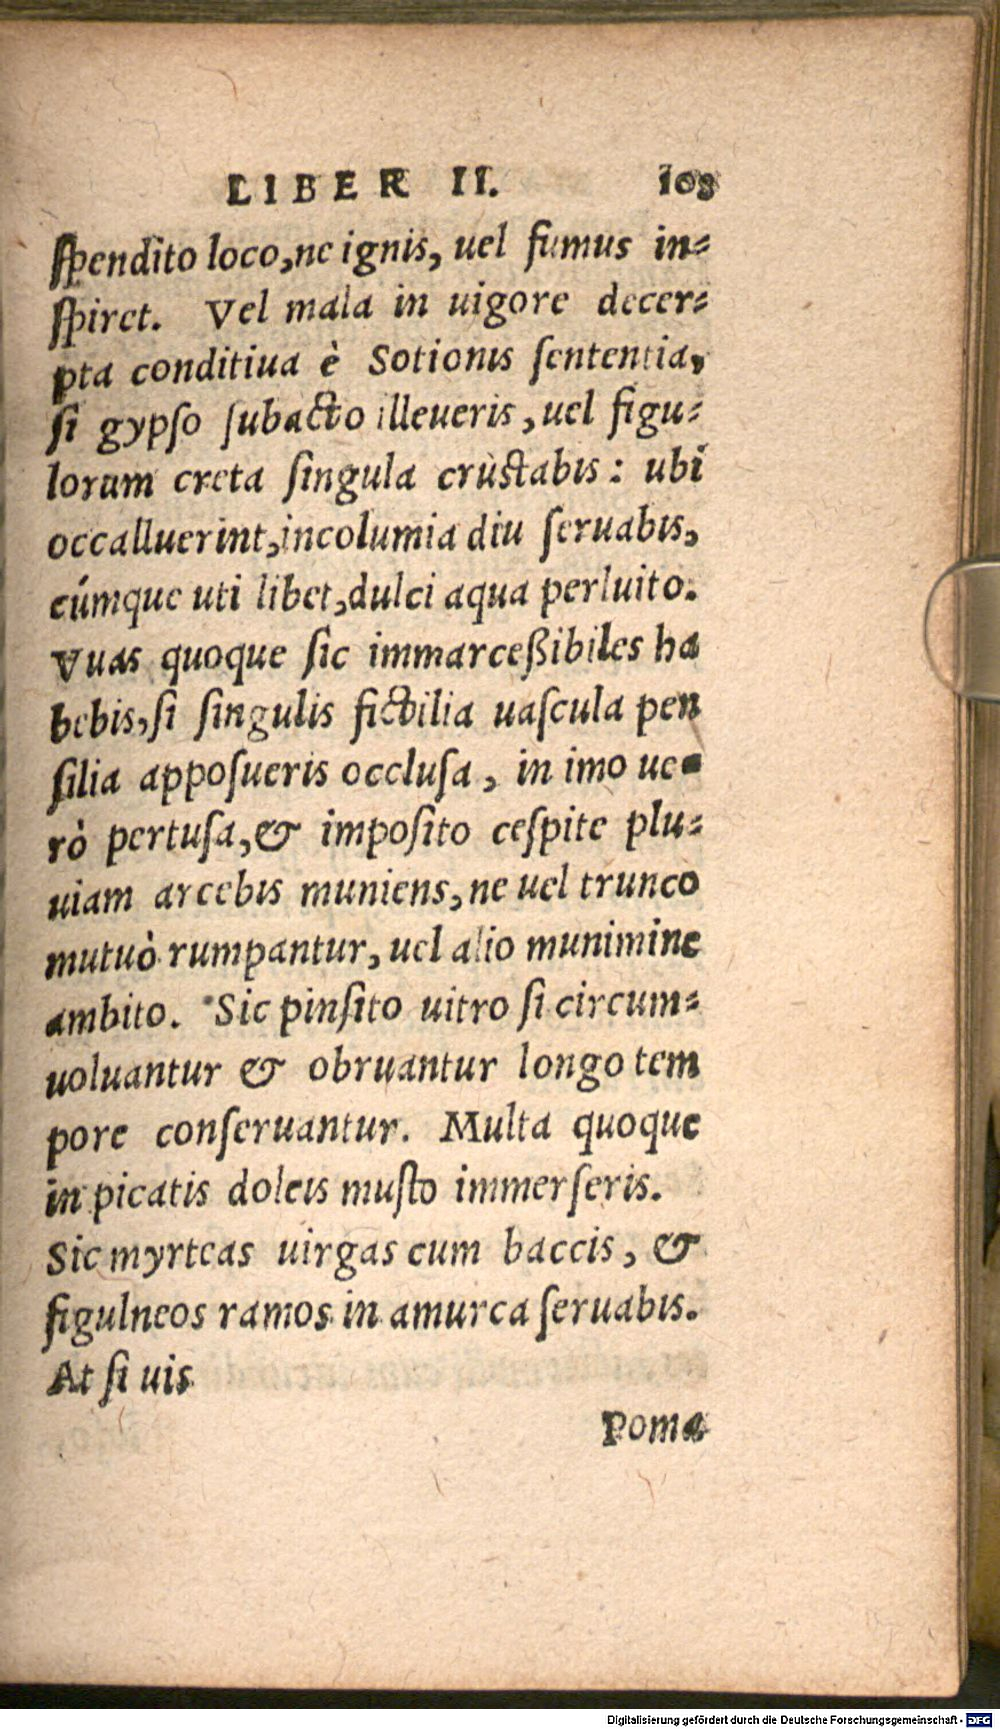 LIBER II. 108
ſpendito loco, ne ignis, uel fumus in-
ſpiret. Vel mala in uigore decer-
pta conditiua è Sotionis ſententia,
ſi gypſo ſubacto illeueris, uel figu-
lorum creta ſingula crùſtabis: ubi
occalluerint, incolumia diu ſeruabis,
cúmque uti libet, dulci aqua perluito.
Vuas quoque ſic immarceßibiles ha
bebis, ſi ſingulis fictilia uaſcula pen
ſilia appoſueris occluſa, in imo ue-
rò pertuſa, & impoſito ceſpite plu-
uiam arcebis muniens, ne uel trunco
mutuò rumpantur, uel alio munimine
ambito. Sic pinſito uitro ſi circum-
uoluantur & obruantur longo tem
pore conſeruantur. Multa quoque
in picatis doleis muſto immerſeris.
Sic myrteas uirgas cum baccis, &
figulneos ramos in amurca ſeruabis.
At ſi uis
Poma
Digitalisierung gefördert durch die Deutsche Forschungsgemeinschaft - DFG